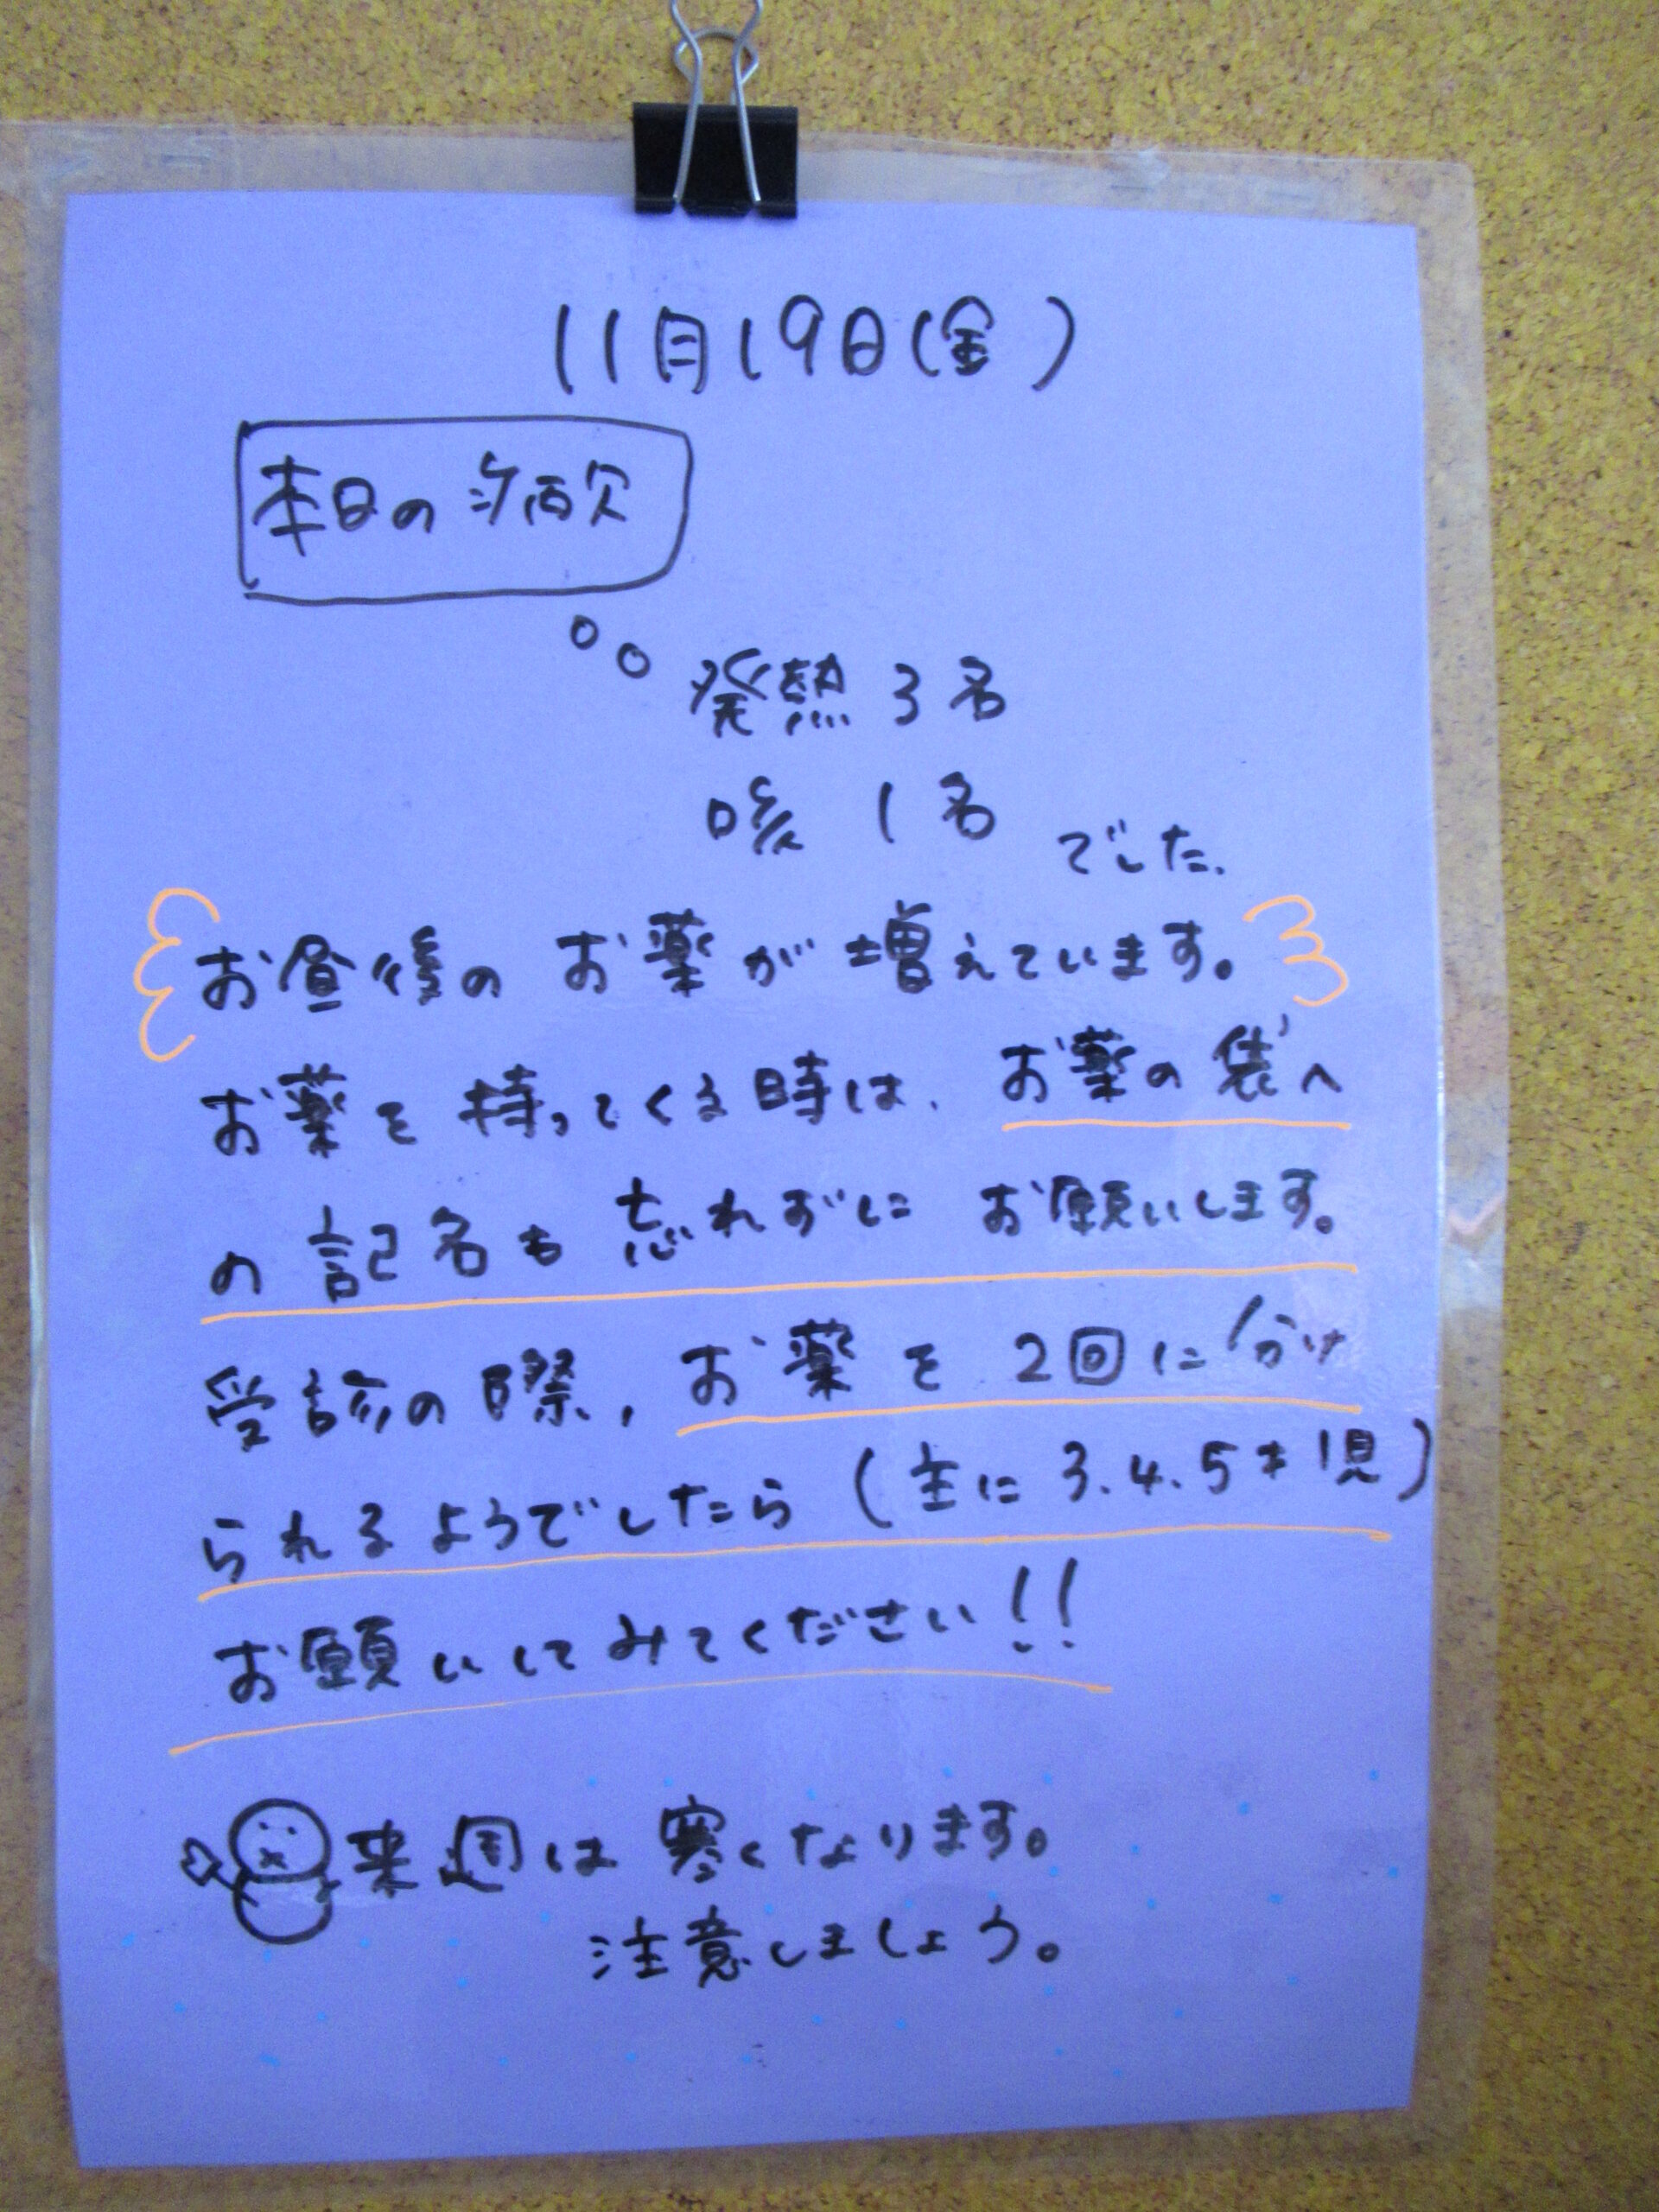 11月19日(金)
本日の病欠
発熱3名
咳 1名 でした.
お昼後の お薬が増えています。
お薬を持ってくる時は、お薬の袋へ
の記名も忘れずに お願いします。
受診の際,お薬を2回に分け
られるようでしたら(主に3.4.5才児)
お願いしてみてください!!
来週は寒くなります。
注意しましょう。